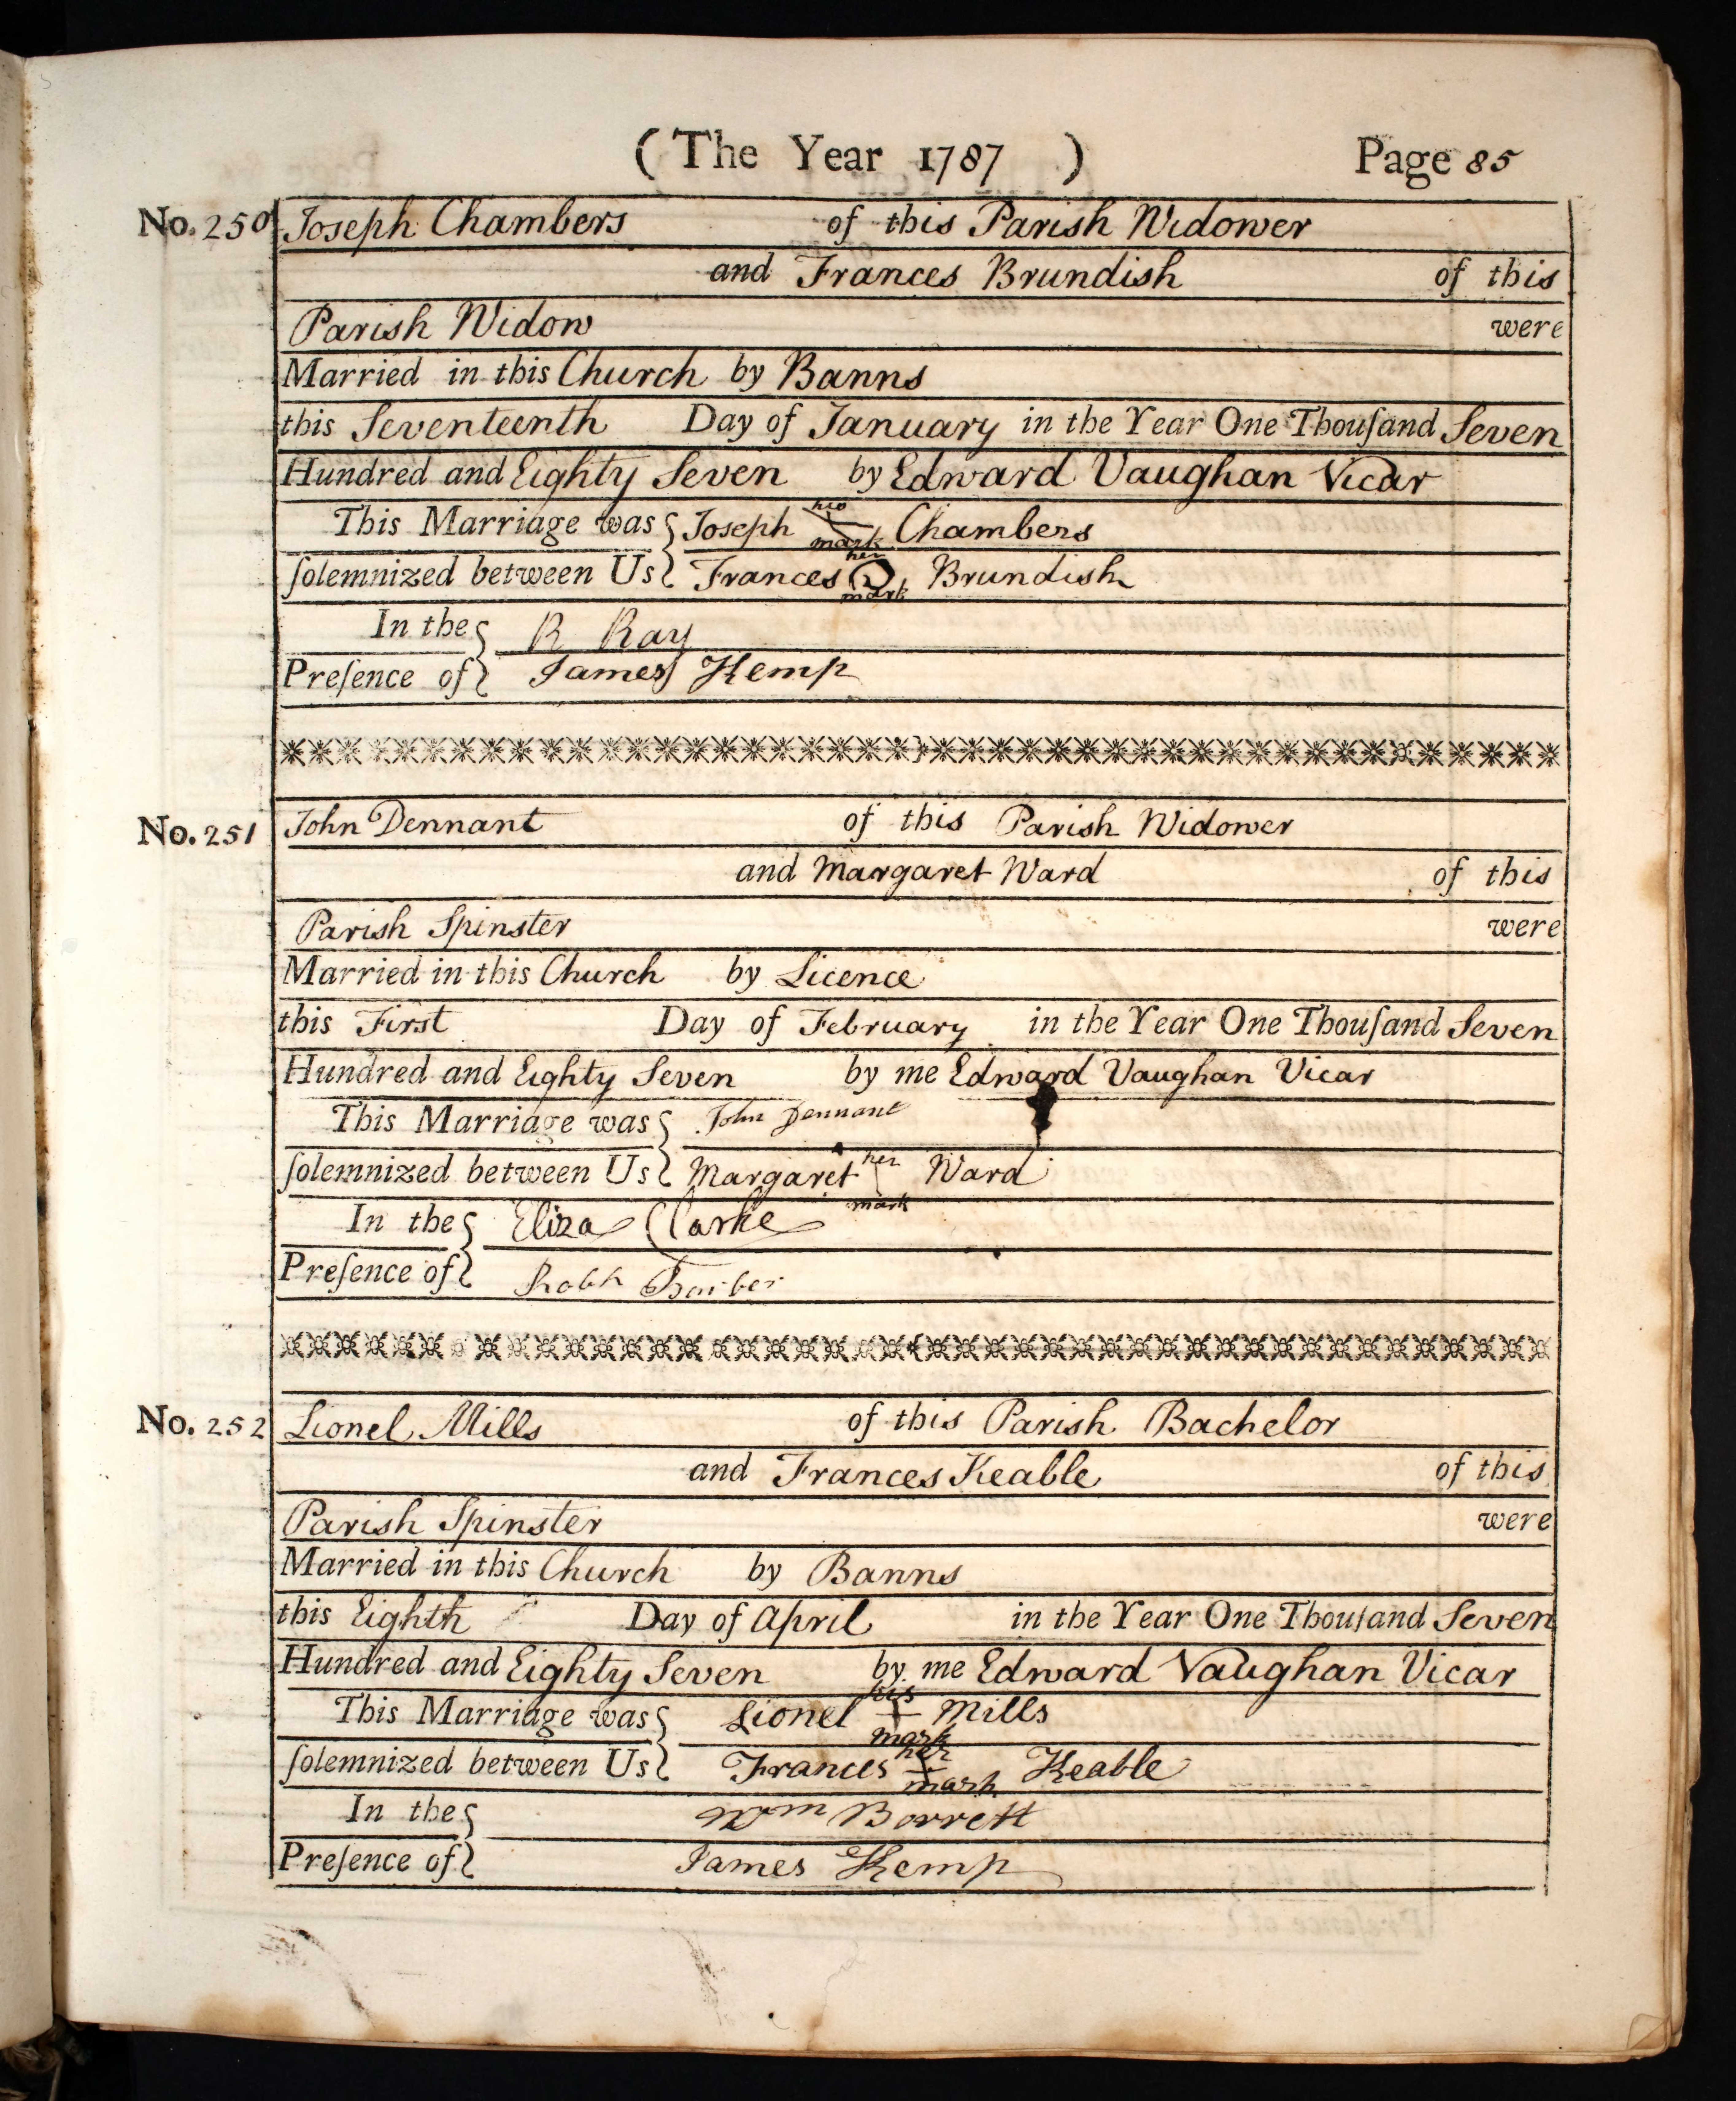 (The Year 1787) Page 85
No. 250 Joseph Chambers of this Parish Widower
and Frances Brundish of this
Parish Widow were
Married in this Church by Banns
this Seventeenth Day of January in the Year One Thouſand Seven
Hundred and Eighty Seven by Edward Vaughan Vicar
This Marriage was Joseph his mark Chambers
ſolemnized between Us Frances her mark Brundish
In the R Ray
Preſence of James Kemp
No. 251 John Dennant of this Parish Widower
and Margaret Ward of this
Parish Spinster were
Married in this Church by Licence
this First Day of February in the Year One Thouſand Seven
Hundred and Eighty Seven by me Edward Vaughan Vicar
This Marriage was John Dennant
ſolemnized between Us Margaret her mark Ward
In the Eliza Clarke
Preſence of Barber
No. 252 Lionel Mills of this Parish Bachelor
and Frances Keable of this
Parish Spinster were
Married in this Church by Banns
this Eighth Day of April in the Year One Thouſand Seven
Hundred and Eighty Seven by me Edward Vaughan Vicar
This Marriage was Lionel his mark Mills
ſolemnized between Us Frances her mark Keable
In the Wm Borrett
Preſence of James Kemp